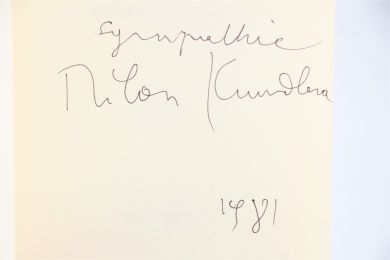 sympathie
Milan Kundera
1981